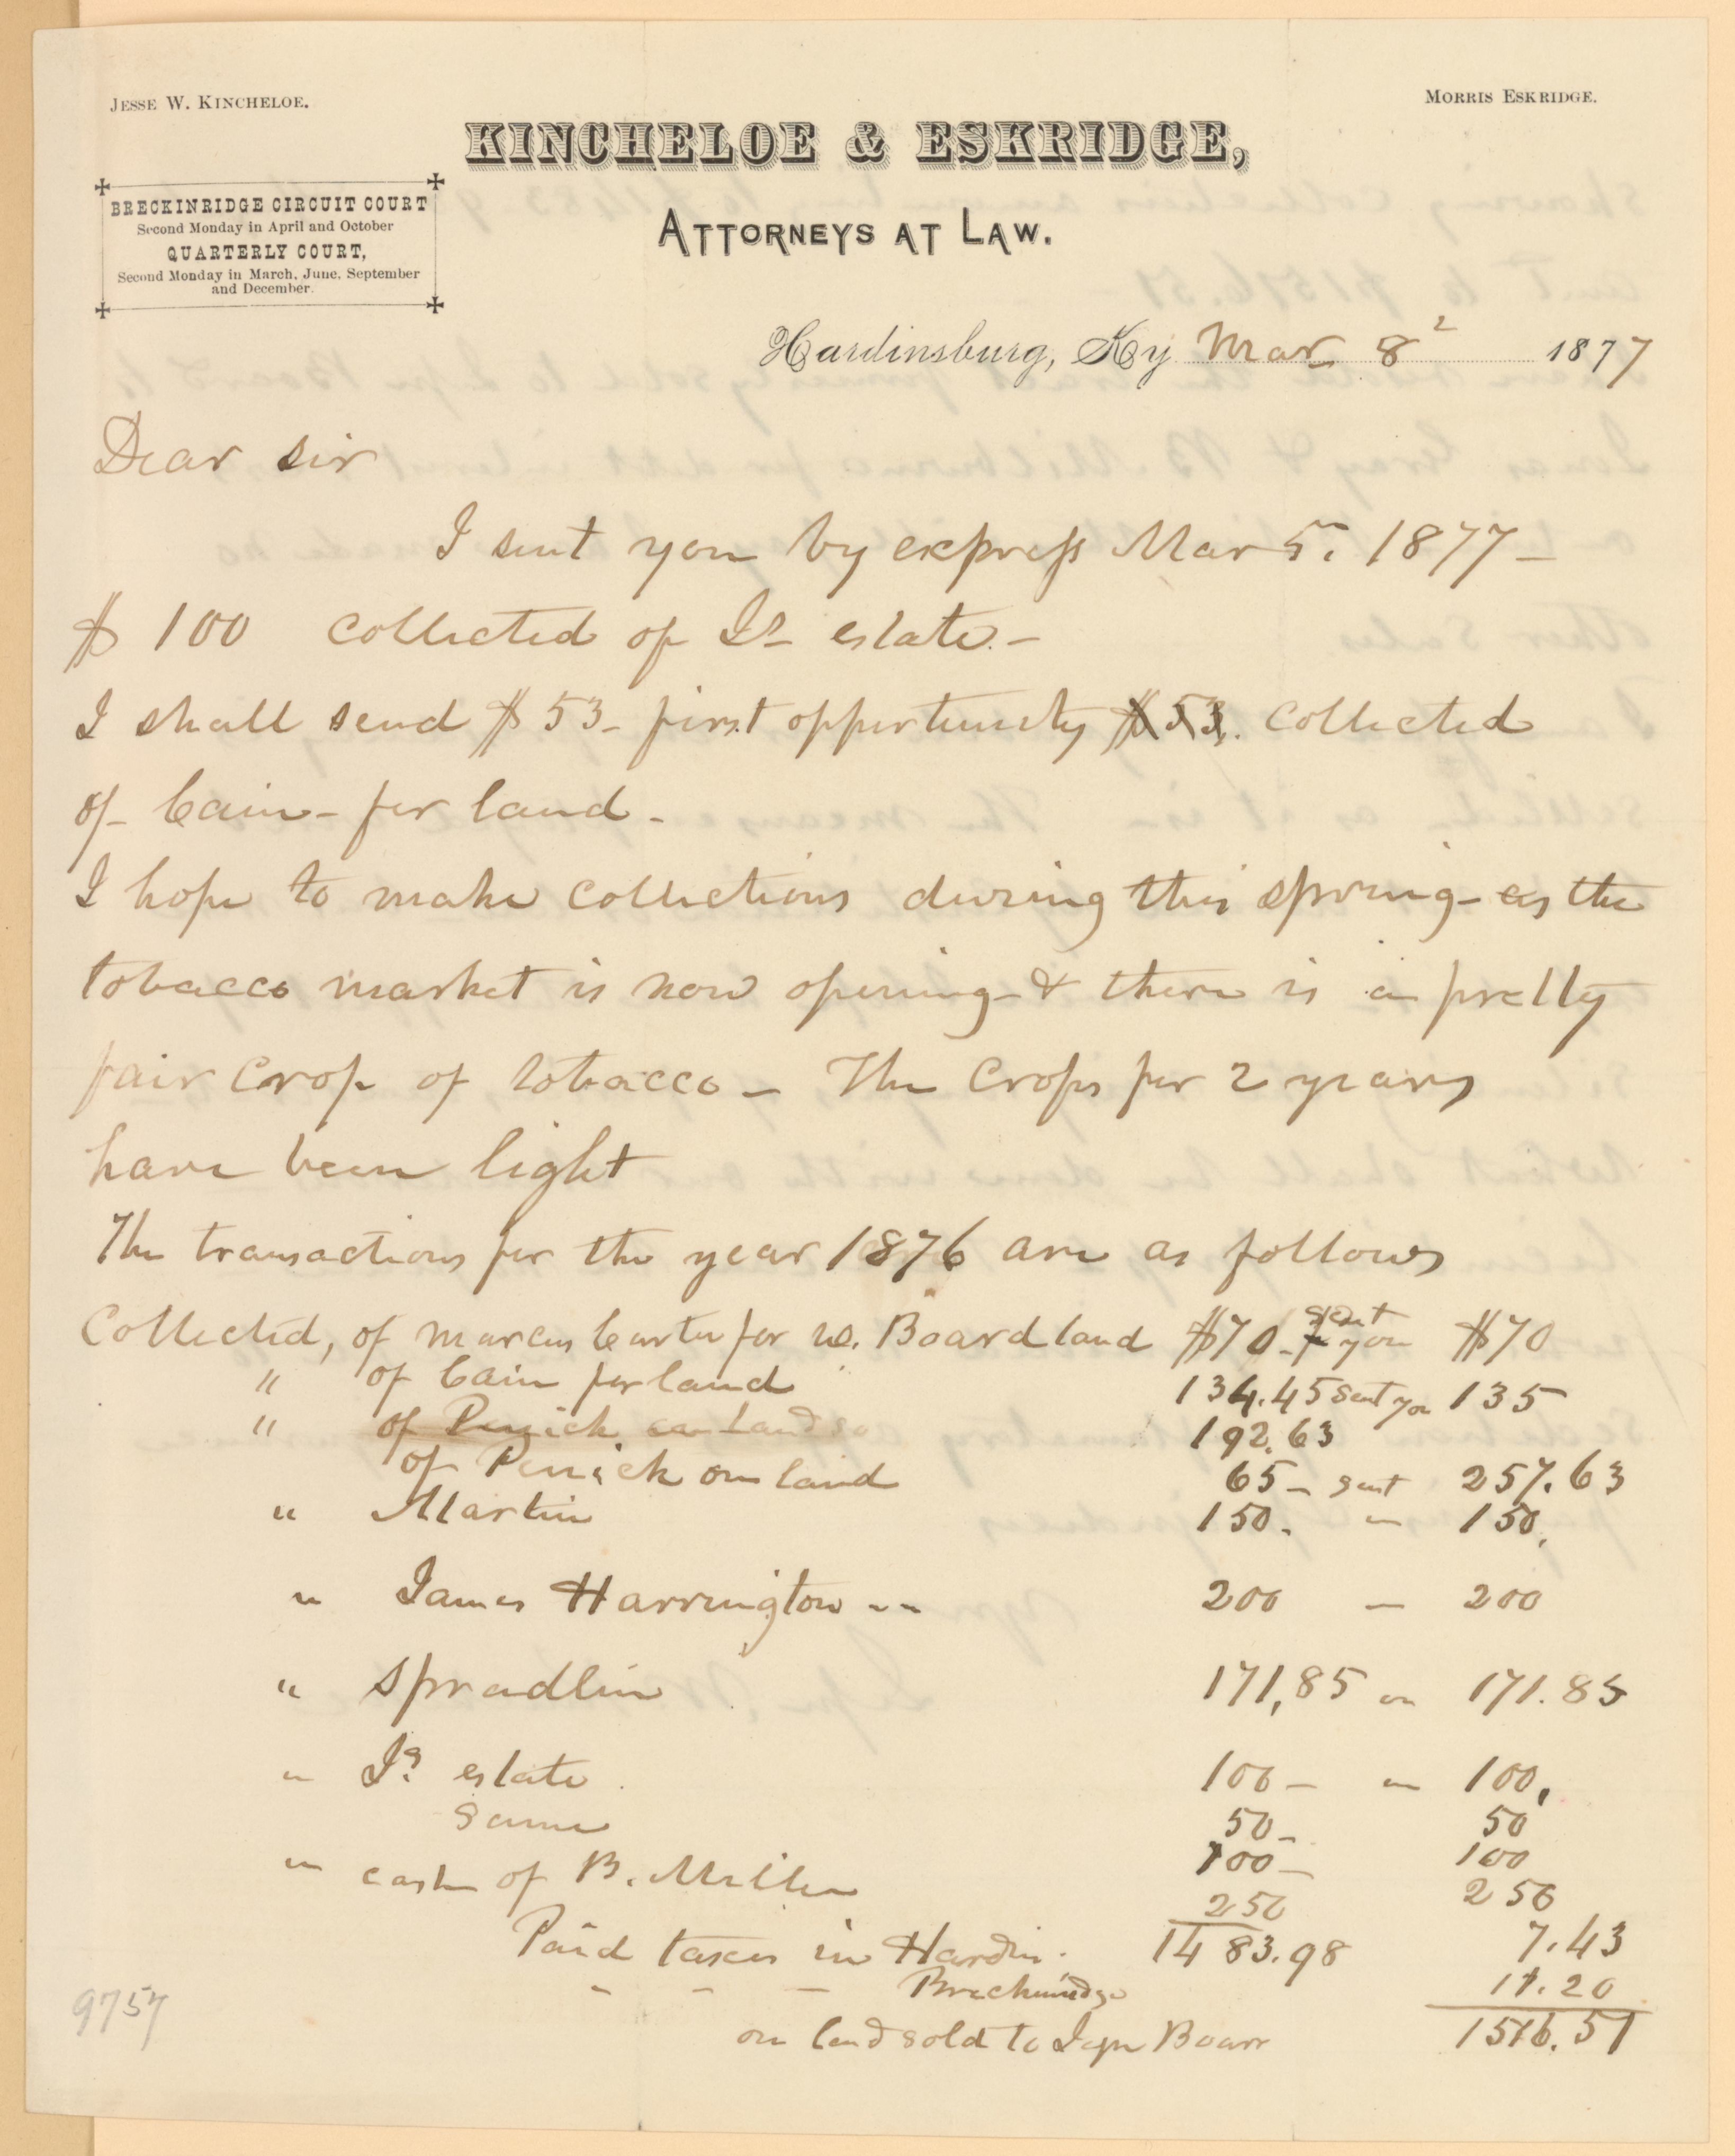 JESSE W. KINCHELOE.
MORRIS ESKRIDGE.
KINCHELOE & ESKRIDGE,
ATTORNEYS AT LAW.
BRECKINRIDGE CIRCUIT COURT
Second Monday in April and October
QUARTERLY COURT,
Second Monday in March, June, September
and December.
Hardinsburg, Ky Mar 8 1877
Dear sir
I sent you by express Mar 5. 1877 -
$ 100 collected of Js estate. -
I shall send $ 53 - first opportunity $53. collected
of - Cain - for land -
I hope to make collections during this spring - as the
tobacco market is now opening - & there is a pretty
fair crop of tobacco - The crops for 2 years
have been light
The transactions for the year 1876 are as follows
Collected, of Marcus Carter for W. Board land $70 - sent you $70
" of Cain for land 134.45 sent you 135
" of Penick on land 192.63
of Penick on land 65 - sent 257.63
" Martin 150. - 150.
" James Harrington -- 200 - 200
" Spradlin 171,85 " 171.85
" Js estate 100 - " 100,
same 50 - 50
" cash of B. Miller 100 - 100
250 250
Paid taxes in Hardin. 1483.98 7.43
- - - Breckinridge 11.20
on land sold to Board 1516.51
9757